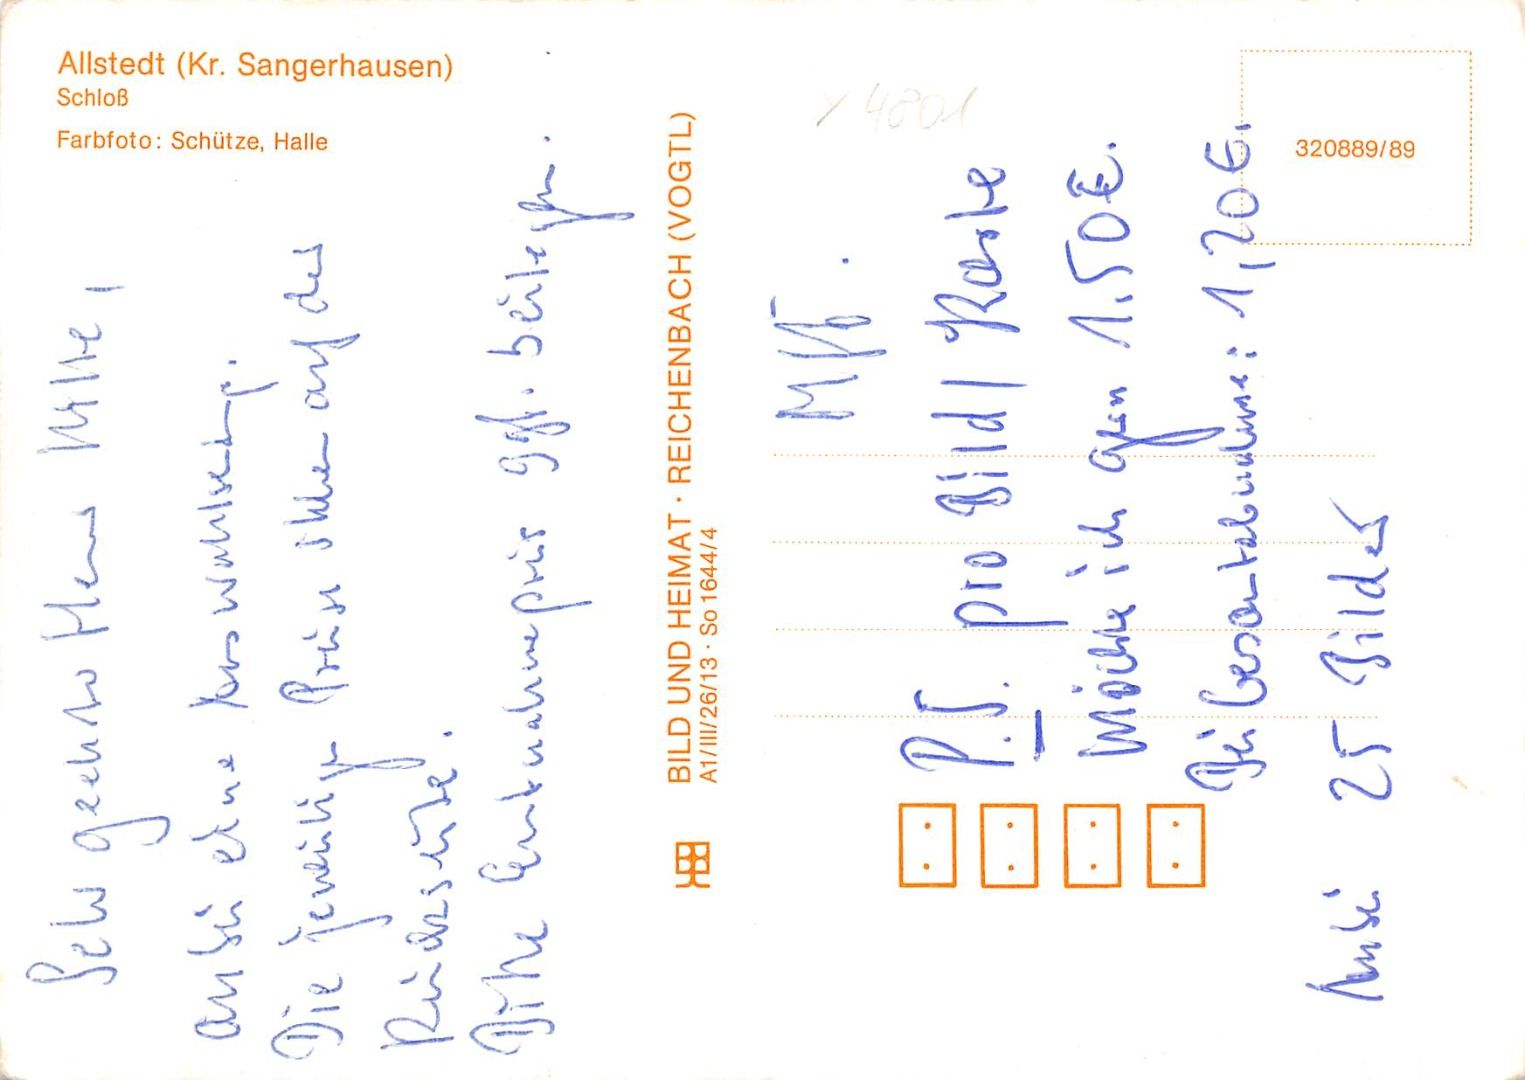 Allstedt (Kr. Sangerhausen)
Schloß
Farbfoto: Schütze, Halle
Sehr geehrter Herr
anbei eine Auswahlsendg.
Die jeweilige Preise stehen auf der
Rückseite.
Bitte Entnahmepreis ggf. beilegen.
BILD UND HEIMAT · REICHENBACH (VOGTL)
A1/III/26/13 · So 1644/4
4801
320889/89
MfG.
P.S. pro Bild / Karte
möchte ich gern 1,50 €.
Bei Gesamtabnahme: 1,20 €.
Anbei 25 Bilder